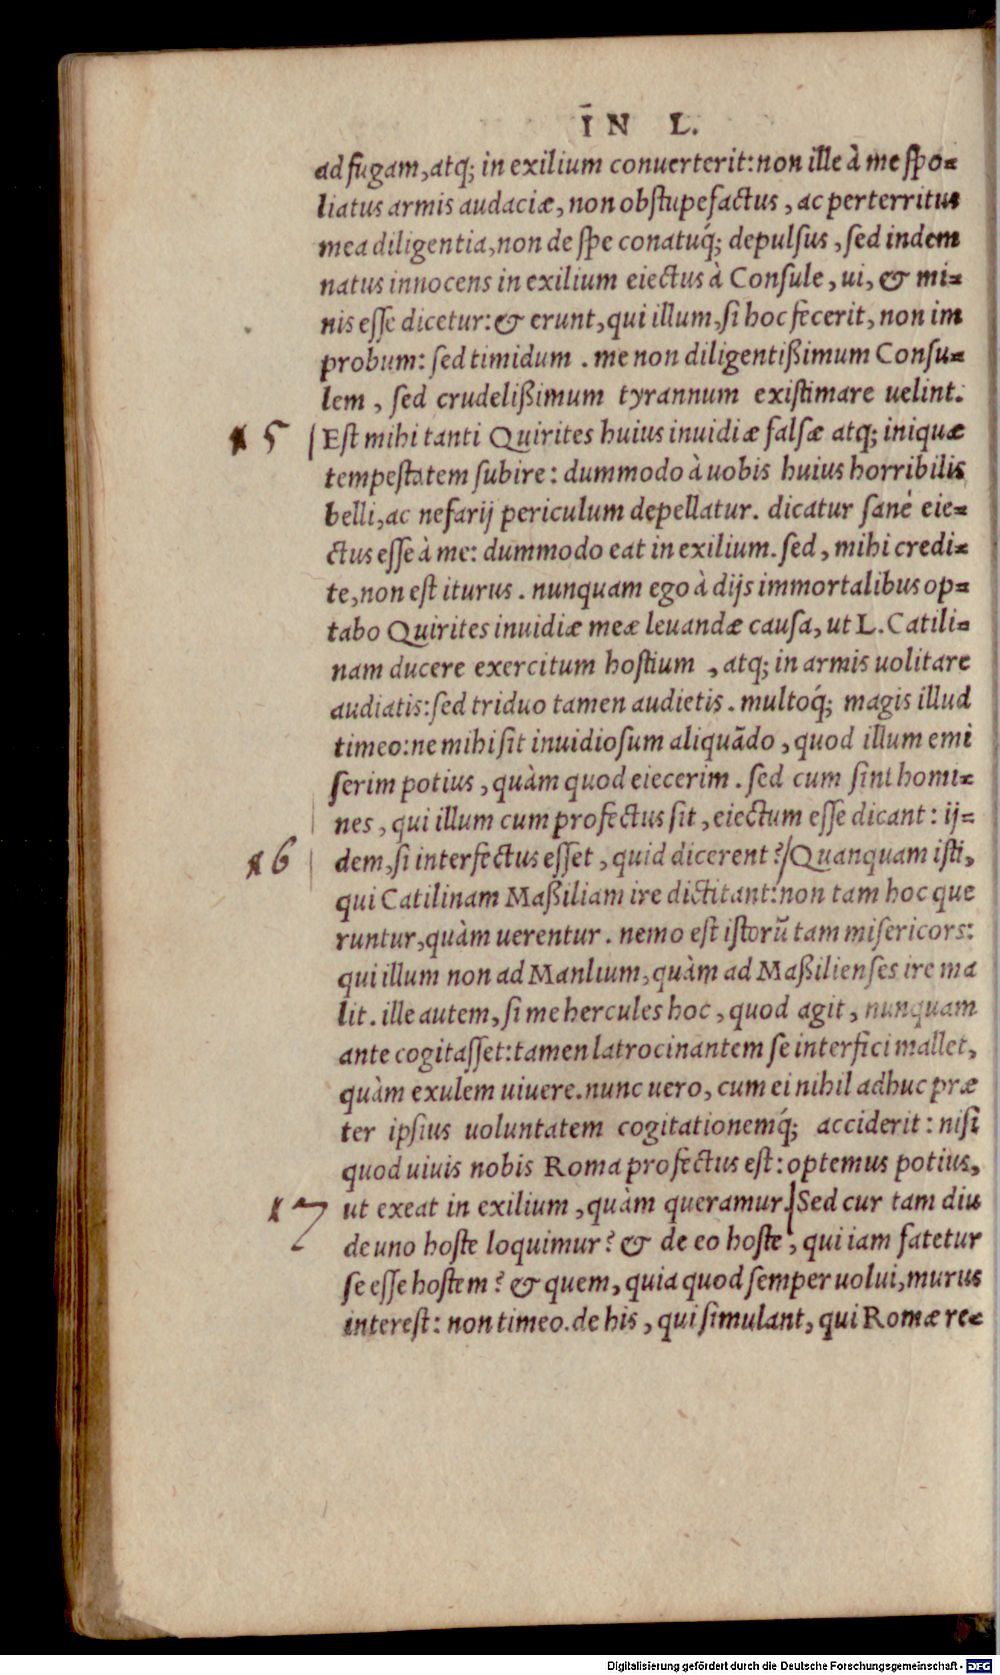 IN L.
ad fugam, atq; in exilium conuerterit: non ille à me ſpo=
liatus armis audaciæ, non obſtupefactus, ac perterritus
mea diligentia, non de ſpe conatuq́; depulſus, ſed indem
natus innocens in exilium eiectus à Conſule, ui, & mi=
nis eſſe dicetur: & erunt, qui illum, ſi hoc fecerit, non im
probum: ſed timidum. me non diligentißimum Conſu=
lem, ſed crudelißimum tyrannum exiſtimare uelint.
15 Eſt mihi tanti Quirites huius inuidiæ falſæ atq; iniquæ
tempeſtatem ſubire: dummodo à uobis huius horribilis
belli, ac nefarij periculum depellatur. dicatur ſanè eie=
ctus eſſe à me: dummodo eat in exilium. ſed, mihi credi=
te, non eſt iturus. nunquam ego à dijs immortalibus op=
tabo Quirites inuidiæ meæ leuandæ cauſa, ut L. Catili=
nam ducere exercitum hoſtium, atq; in armis uolitare
audiatis: ſed triduo tamen audietis. multoq́; magis illud
timeo: ne mihi ſit inuidioſum aliquãdo, quod illum emi
ſerim potius, quàm quod eiecerim. ſed cum ſint homi=
nes, qui illum cum profectus ſit, eiectum eſſe dicant: ij=
16 dem, ſi interfectus eſſet, quid dicerent? Quanquam iſti,
qui Catilinam Maßiliam ire dictitant: non tam hoc que
runtur, quàm uerentur. nemo eſt iſtorũ tam miſericors:
qui illum non ad Manlium, quàm ad Maßilienſes ire ma
lit. ille autem, ſi me hercules hoc, quod agit, nunquam
ante cogitaſſet: tamen latrocinantem ſe interfici mallet,
quàm exulem uiuere. nunc uero, cum ei nihil adhuc præ
ter ipſius uoluntatem cogitationemq́; acciderit: niſi
quod uiuis nobis Roma profectus eſt: optemus potius,
17 ut exeat in exilium, quàm queramur. Sed cur tam diu
de uno hoſte loquimur? & de eo hoſte, qui iam fatetur
ſe eſſe hoſtem? & quem, quia quod ſemper uolui, murus
intereſt: non timeo. de his, qui ſimulant, qui Romæ re=
Digitalisierung gefördert durch die Deutsche Forschungsgemeinschaft - DFG